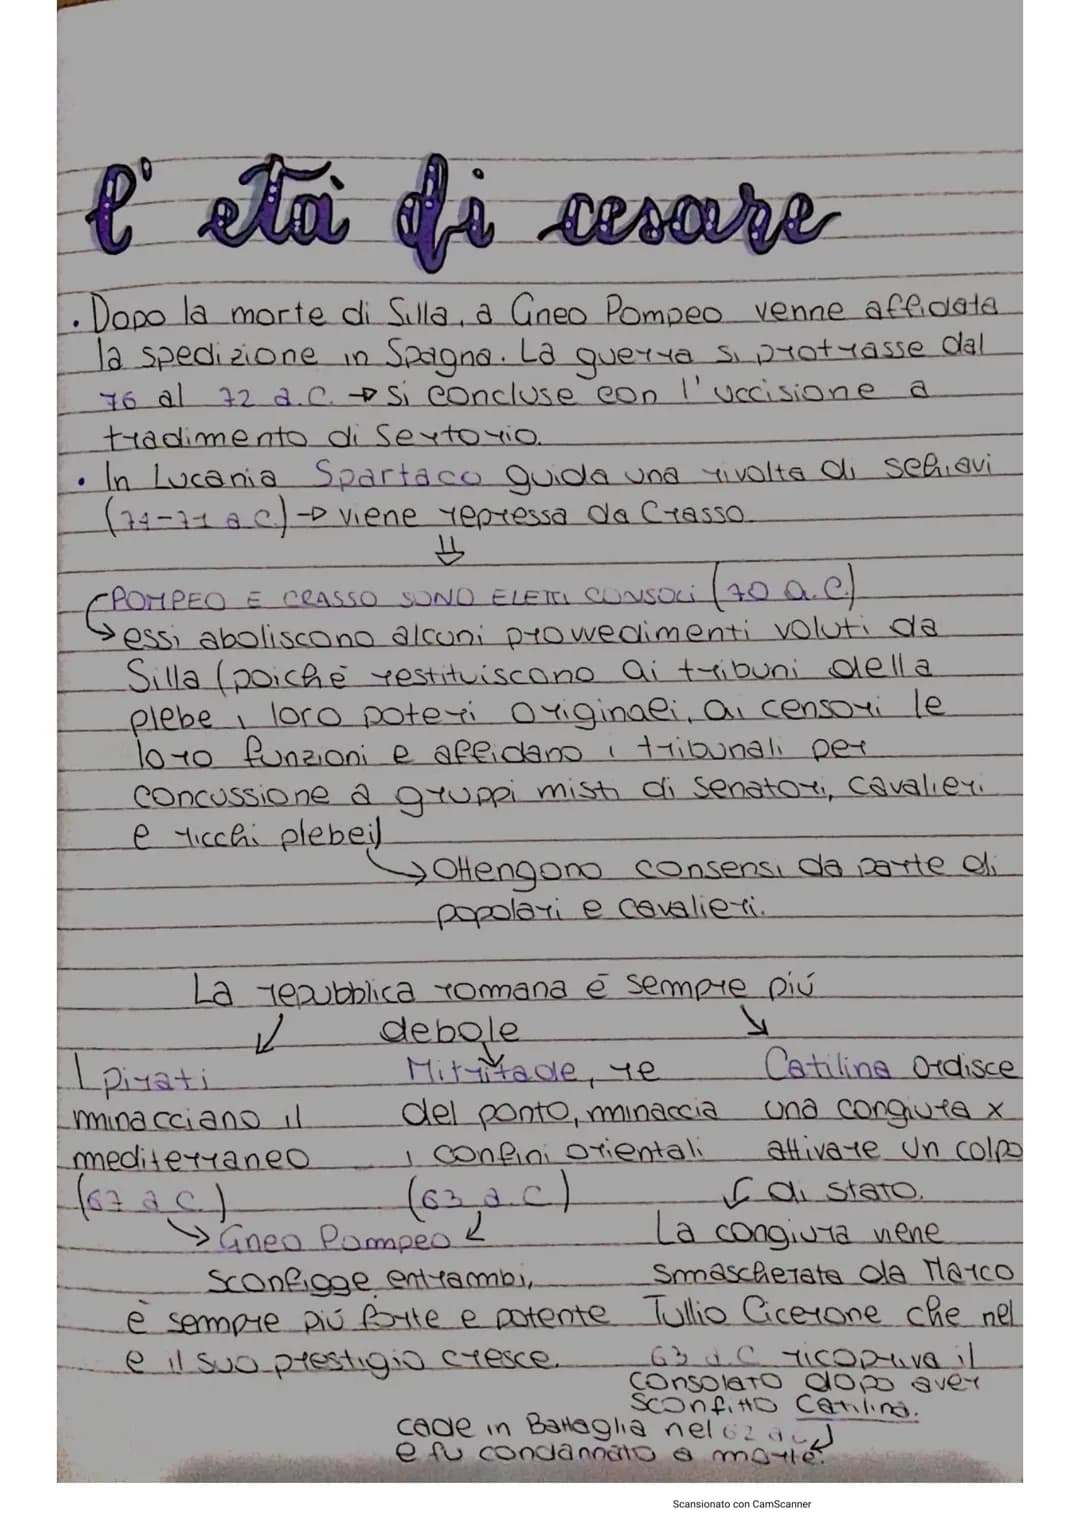 l'età di cesare
• Dopo la morte di Silla, a Gneo Pompeo venne affidata
la spedizione in Spagna. La guerra si protrasse dal
76 al 72 a.C. → si concluse con l'uccisione a
tradimento di Sertorio.
• In Lucania Spartaco guida una rivolta di schiavi
(74-71 a.C.) → viene repressa da Crasso.
⇓
POMPEO E CRASSO SONO ELETTI CONSOLI (70 a.C.)
→ essi aboliscono alcuni provvedimenti voluti da
Silla (poichè restituiscono ai tribuni della
plebe i loro poteri originali, ai censori le
loro funzioni e affidano i tribunali per
concussione a gruppi misti di senatori, cavalieri
e ricchi plebei)
→ Ottengono consensi da parte di
popolari e cavalieri.
La repubblica romana è sempre piú
debole
I pirati
minacciano il
mediterraneo
(67 a.C.)
Mitritade, re
del ponto, minaccia
i confini orientali
(63 a.C)
→ Gneo Pompeo
sconfigge entrambi,
è sempre piú forte e potente
e il suo prestigio cresce.
Catilina ordisce
una congiura x
attivare un colpo
di stato.
La congiura viene
smascherata da Marco
Tullio Cicerone che nel
63 a.C ricopriva il
consolato dopo aver
sconfitto Catilina.
cade in Battaglia nel 62 a.C
e fu condannato a morte.
Scansionato con CamScanner